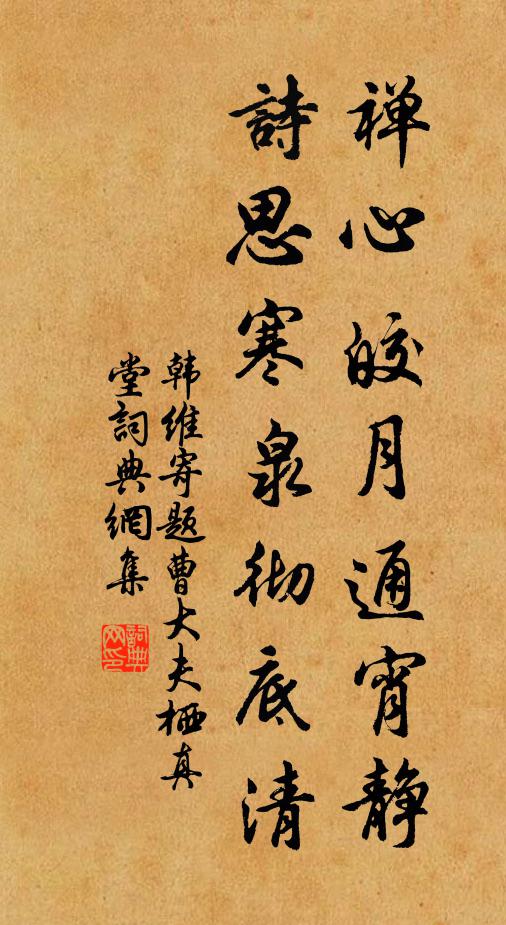 禅心皎月通宵静
詩思寒泉彻底清
韩维寄题曹大夫栖真
堂詞典網集
詞典
网印